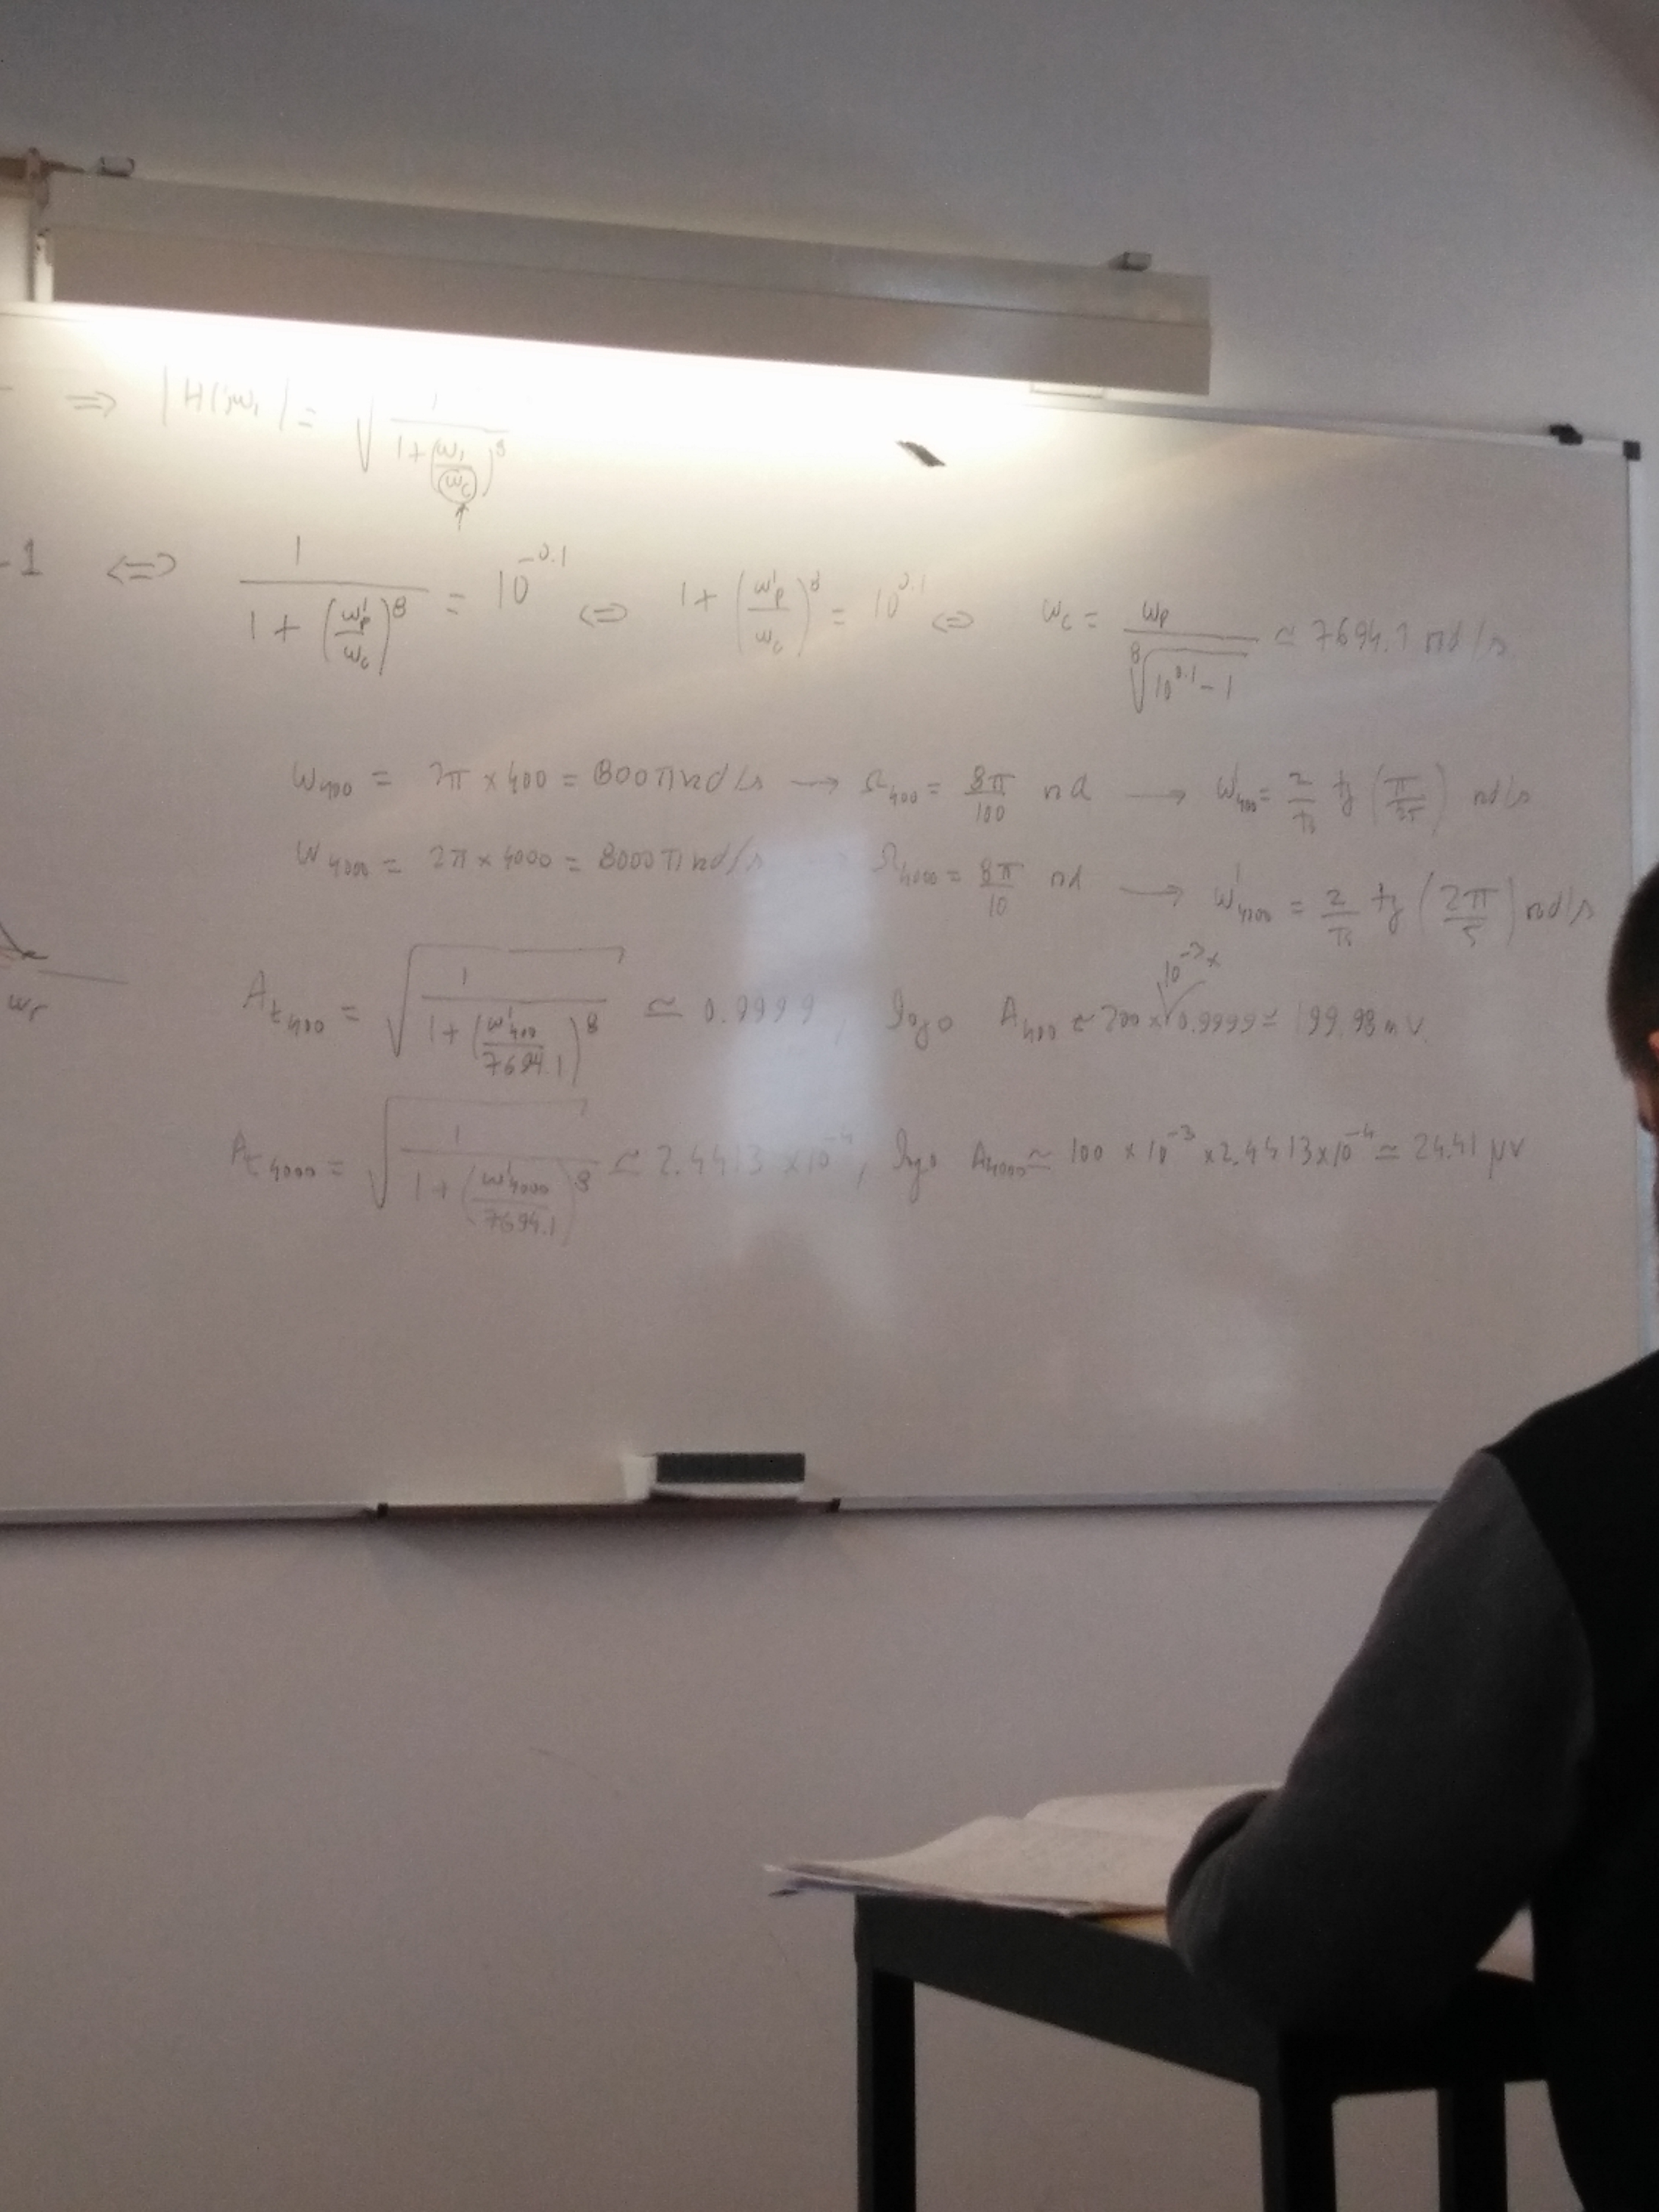 ⇒ |H(jω)| = √(1/(1+(ω/ωc)^8))
-1 ⇔ 1/(1+(ω'p/ωc)^8) = 10^-0.1 ⇔ 1+(ω'p/ωc)^8 = 10^0.1 ⇔ ωc = ωp/⁸√(10^0.1-1) ≃ 7694.1 rad/s
ω400 = 2π×400 = 800π rad/s → Ω400 = 8π/100 rad → ω'400 = 2/Ts tg(π/25) rad/s
ω4000 = 2π×4000 = 8000π rad/s → Ω4000 = 8π/10 rad → ω'4000 = 2/Ts tg(2π/5) rad/s
ωr
At400 = √(1/(1+(ω'400/7694.1)^8)) ≃ 0.9999, logo A400 ≃ 200×10^-3×0.9999 ≃ 199.98 mV
At4000 = √(1/(1+(ω'4000/7694.1)^8)) ≃ 2.4413×10^-4, logo A4000 ≃ 100×10^-3×2.4413×10^-4 ≃ 24.41 μV